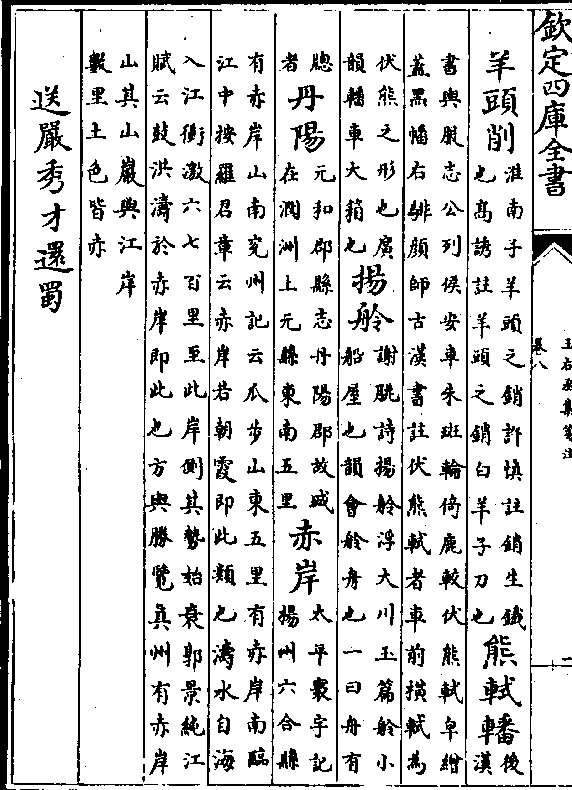 欽定四庫全書
王右丞集箋注
卷八
二
羊頭削
淮南子羊頭之銷許慎註銷生鐵
也髙誘註羊頭之銷白羊子刀也
熊軾轓
後
漢
書輿服志公列侯安車朱班輪倚鹿較伏熊軾皁繒
葢黑轓右騑顔師古漢書註伏熊軾者車前横軾為
伏熊之形也廣
韻轓車大箱也
揚舲
謝脁詩揚舲浮大川玉篇舲小
船屋也韻會舲舟也一曰舟有
牕
者
丹陽
元和郡縣志丹陽郡故城
在潤州上元縣東南五里
赤岸
太平寰宇記
揚州六合縣
有赤岸山南兖州記云瓜步山東五里有赤岸南臨
江中按羅君章云赤岸若朝霞即此類也濤水自海
入江衝激六七百里至此岸側其勢始衰郭景純江
賦云鼓洪濤於赤岸即此也方輿勝覽真州有赤岸
山其山巖與江岸
數里土色皆赤
送嚴秀才還蜀